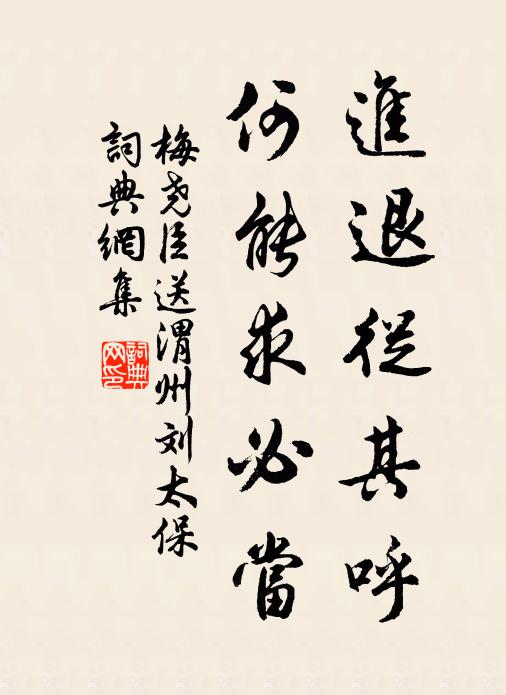 進退從其呼
何能求必當
梅尧臣送渭州刘太保
詞典網集
詞典
网印